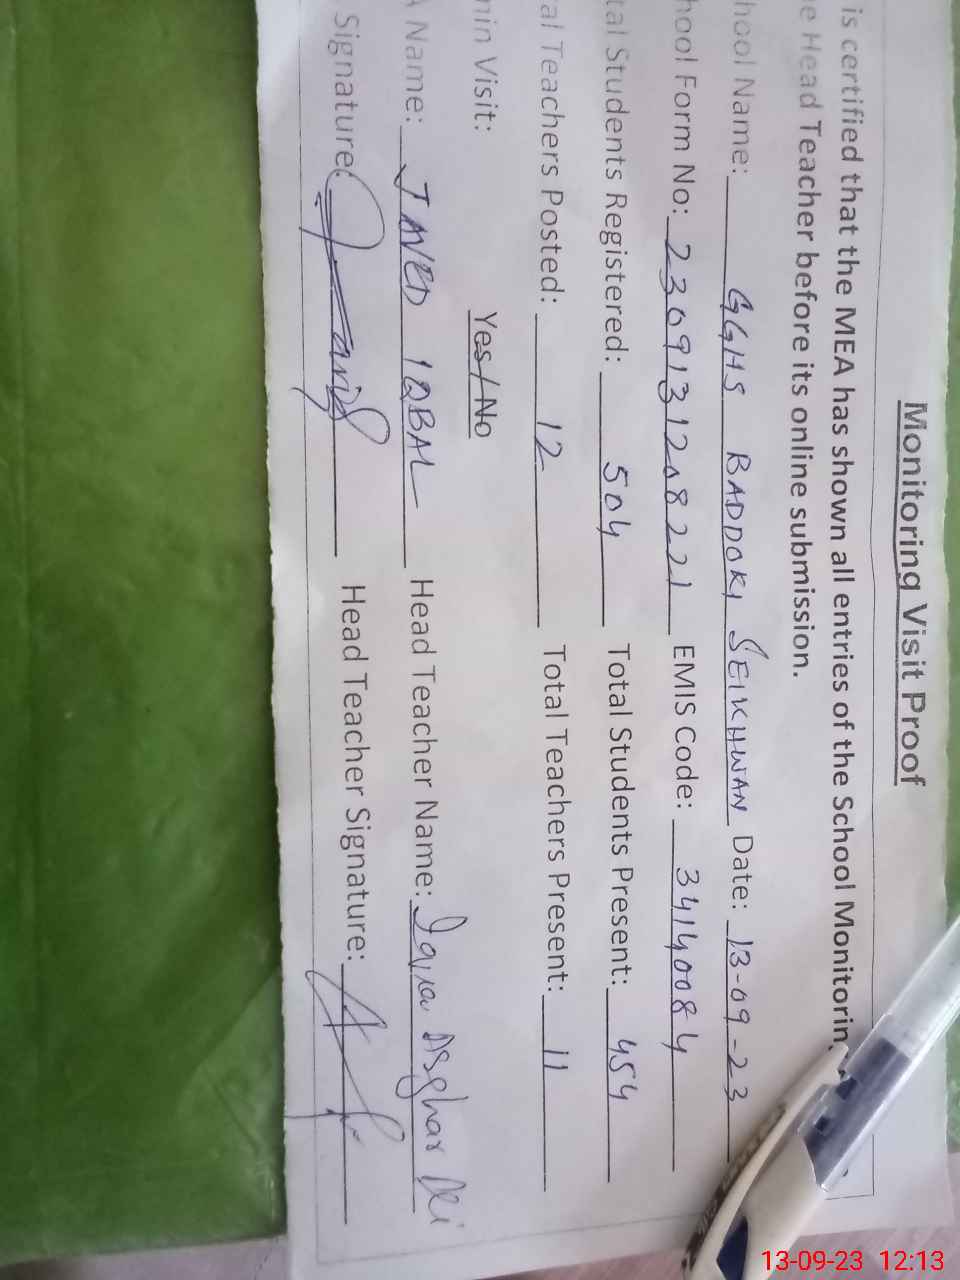 Monitoring Visit Proof
is certified that the MEA has shown all entries of the School Monitorin
e Head Teacher before its online submission.
hool Name: GGHS BADDOKI SEIKHWAN Date: 13-09-23
hool Form No: 2309131208221 EMIS Code: 34140084
tal Students Registered: 504 Total Students Present: 454
al Teachers Posted: 12 Total Teachers Present: 11
min Visit: Yes/No
A Name: JAVED IQBAL Head Teacher Name: Iqra Asghar
Signature: Head Teacher Signature:
13-09-23 12:13